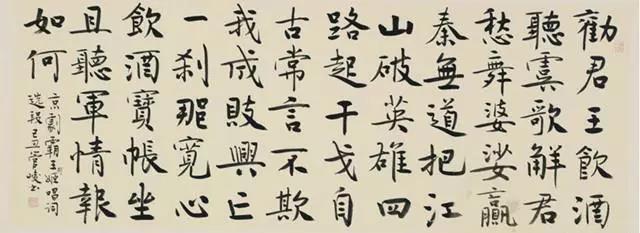 勸君王飲酒
聽虞歌解君
愁舞婆娑贏
秦無道把江
山破英雄四
路起干戈自
古常言不欺
我成敗興亡
一刹那寬心
飲酒寶帳坐
且聽軍情報
如何
京劇霸王別姬唱詞
選段己丑管峻书